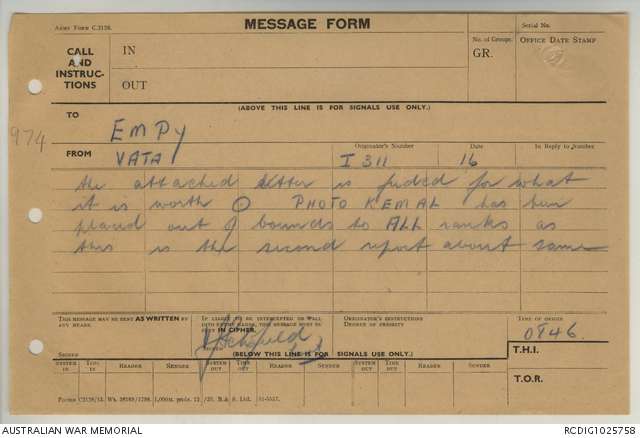 Army Form C.2128.
MESSAGE FORM
Serial No.
CALL AND INSTRUCTIONS
IN
OUT
No. of Groups.
GR.
Office Date Stamp
(ABOVE THIS LINE IS FOR SIGNALS USE ONLY.)
974
TO
EMPY
FROM
VATA
Originator's Number
I 311
Date
16
In Reply to Number
the attached letter is for what
it is worth ⊙ PHOTO KEMAL has been
placed out of bounds to ALL ranks as
this is the second report about same
THIS MESSAGE MAY BE SENT AS WRITTEN BY ANY MEANS.
IF LIABLE TO BE INTERCEPTED OR FALL INTO ENEMY HANDS, THIS MESSAGE MUST BE SENT IN CIPHER.
ORIGINATOR'S INSTRUCTIONS
DEGREE OF PRIORITY
TIME OF ORIGIN
0846
SIGNED
(BELOW THIS LINE IS FOR SIGNALS USE ONLY.)
T.H.I.
SYSTEM IN
TIME IN
READER
SENDER
SYSTEM OUT
TIME OUT
READER
SENDER
SYSTEM OUT
TIME OUT
READER
SENDER
T.O.R.
51-5517.
AUSTRALIAN WAR MEMORIAL
RCDIG1025758